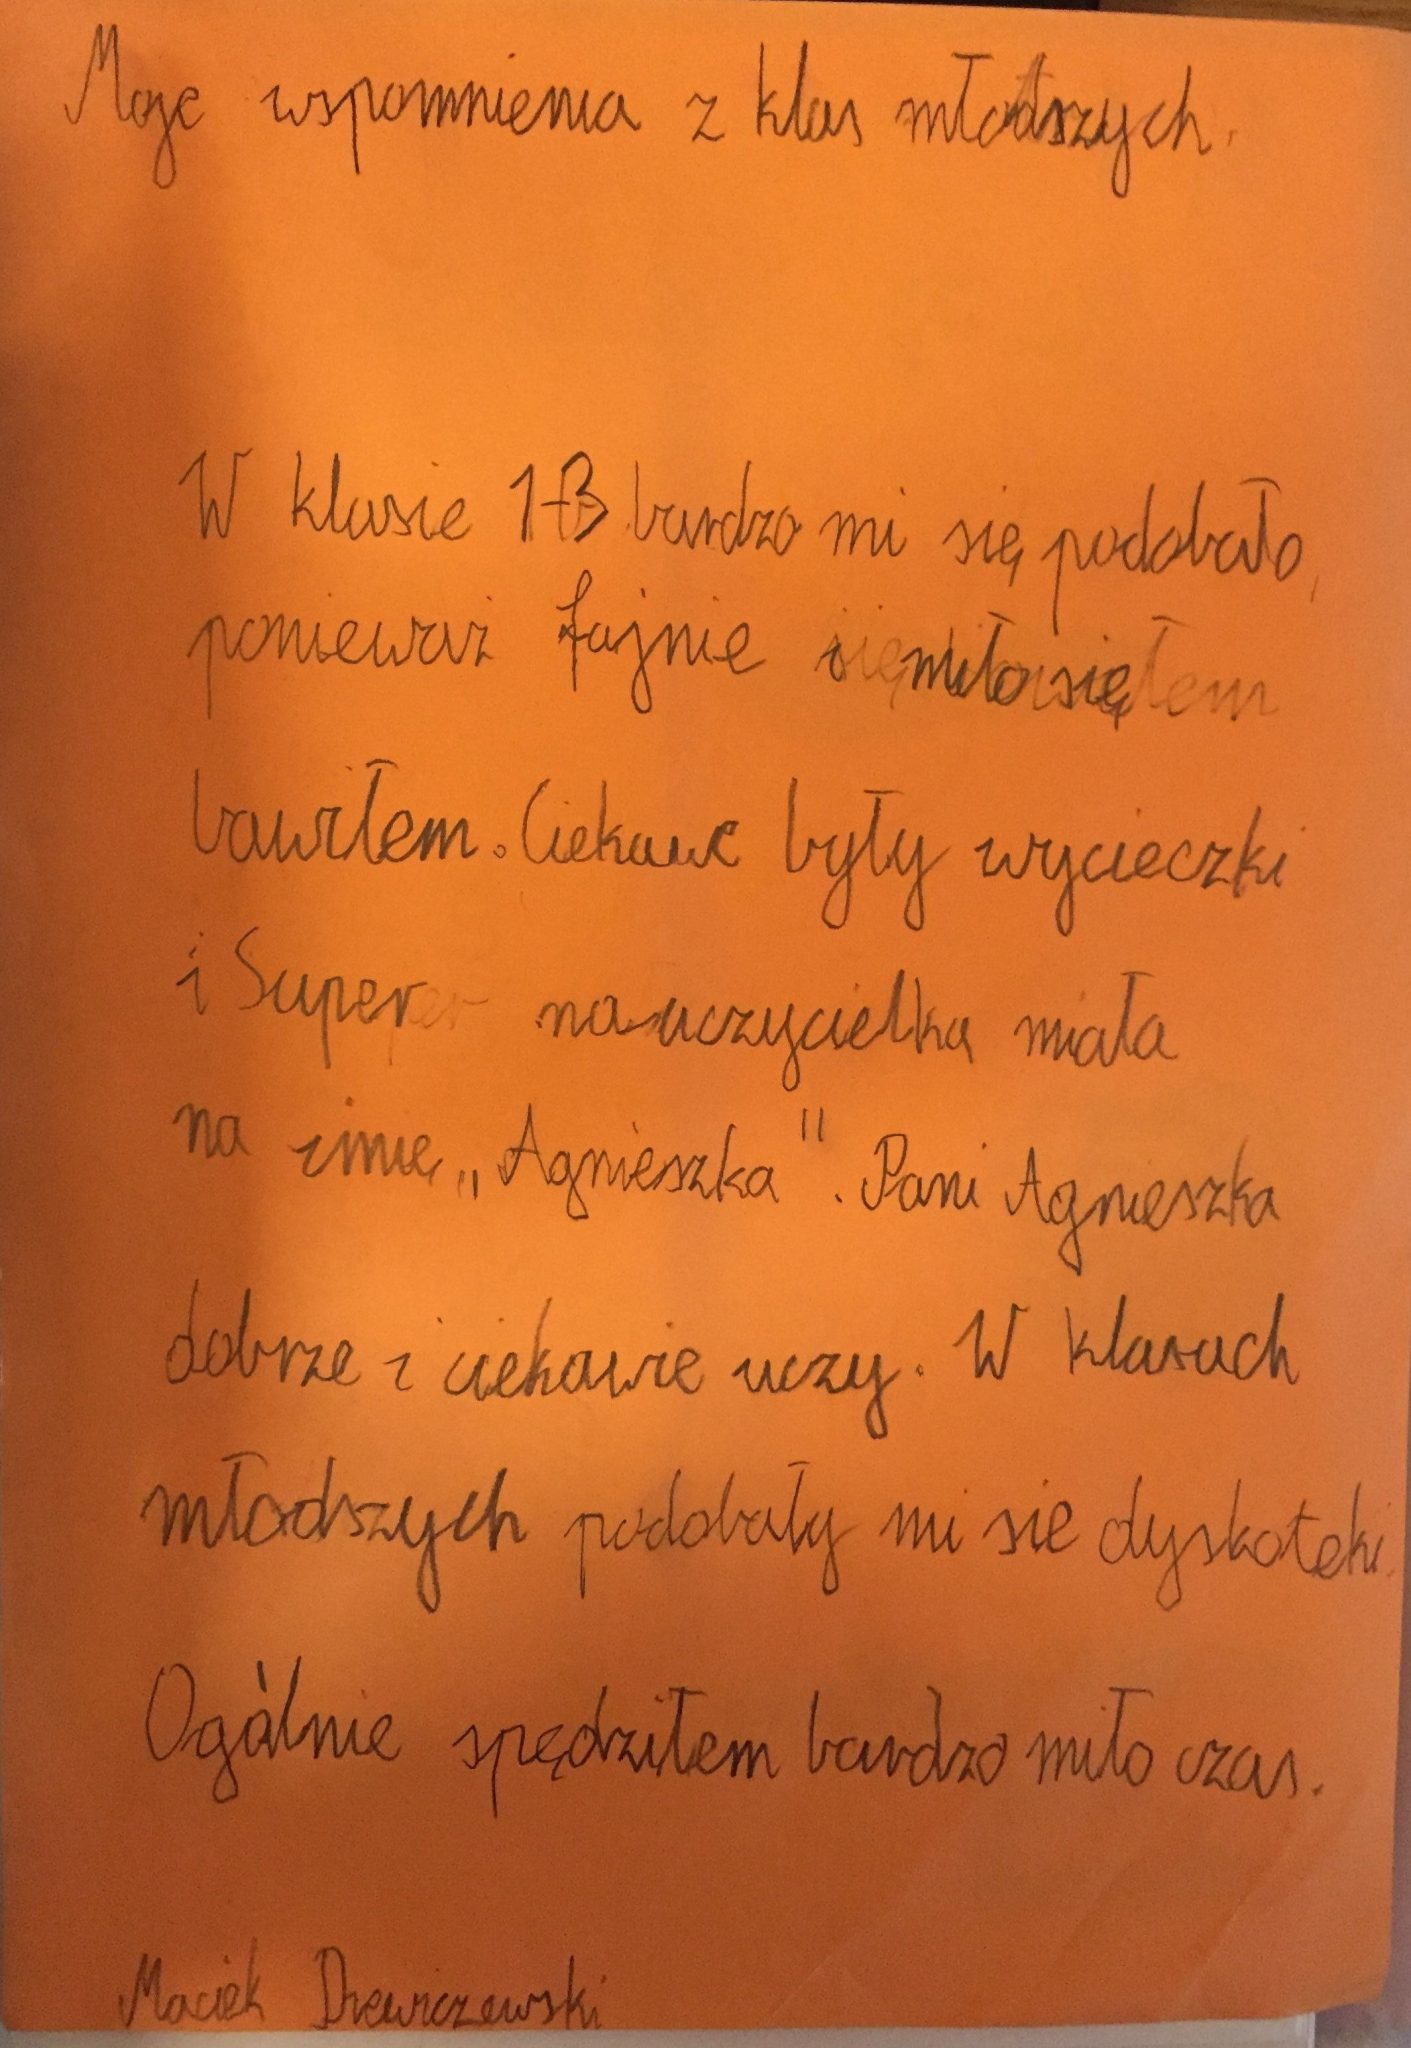 Moje wspomnienia z klas młodszych.
W klasie 1B bardzo mi się podobało,
ponieważ fajnie i miło się
bawiłem. Ciekawe były wycieczki
i Super nauczycielką miała
na imię „Agnieszka". Pani Agnieszka
dobrze i ciekawie uczy. W klasach
młodszych podobały mi sie dyskoteki.
Ogólnie spędziłem bardzo miło czas.
Maciek Drewiczewski